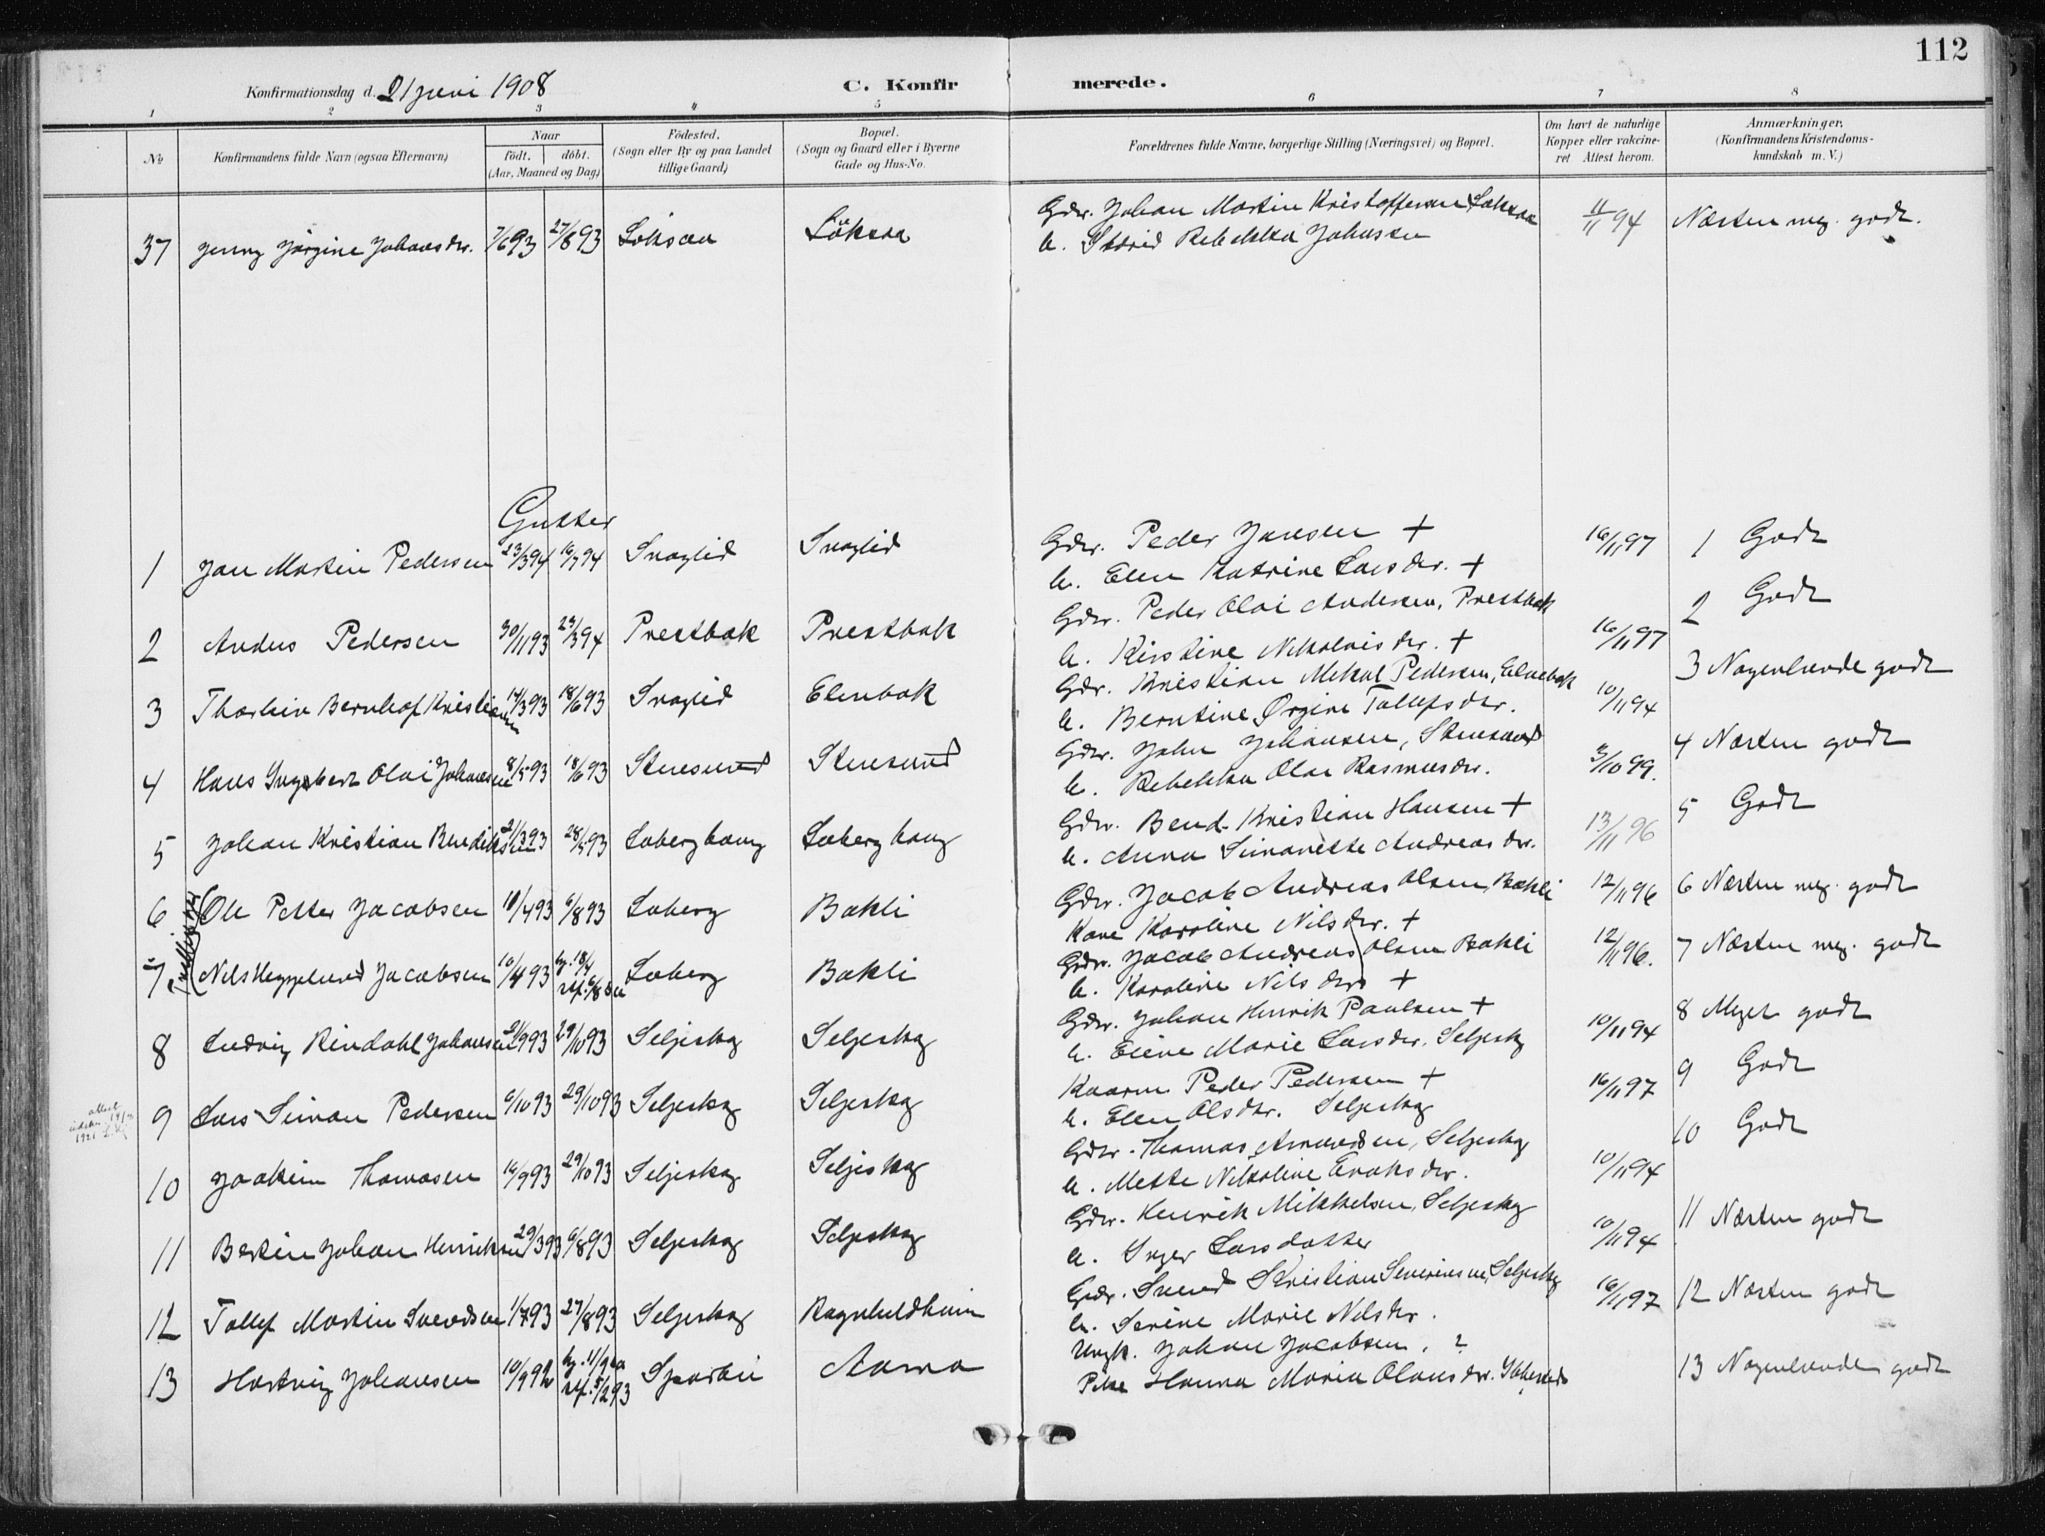 112
Konfirmationsdag d. 21 juni 1908
C. Konfirmerede.
1 2 3 4 5 6 7 8
No
Konfirmandens fulde Navn (ogsaa Efternavn)
Naar födt. döbt. (Aar, Maaned og Dag)
Födested. (Sogn eller By og paa Landet tillige Gaard)
Bopæl. (Sogn og Gaard eller i Byerne Gade og Hus-No.
Forældrenes fulde Navne, borgerlige Stilling (Næringsvei) og Bopæl.
Om havt de naturlige Kopper eller vakcineret Attest herom.
Anmærkninger. (Konfirmandens Kristendomskundskab m. V.)
37 Jenny Jörgine Johansdtr. 7/6 93 27/8 93 Löksaa Löksaa Gdbr. Johan Martin Kristoffersen Løksaa 11/11 94 Næsten meg. godt.
h. Rebekka Johnsen
Gutter
1 Jan Martin Pedersen 23/3 94 16/7 94 Snøglid Snøglid Gdbr. Peder Jansen + 16/11 97 1 Godt
h. Elen Katrine Larsdtr. +
2 Anders Pedersen 30/11 93 23/3 94 Prestbak Prestbak Gdbr. Peder Olai Andersen, Prestbak 16/11 97 2 Godt
h. Kirstine Nikolaisdtr. +
3 Thorleiv Bernhof Kristiansen 17/3 93 18/6 93 Snøglid Elvebak Gdbr. Kristian Mekal Pedersen, Elvebak 10/11 94 3 Nogenlunde godt
h. Berntine Ørgine Tollefsdtr.
4 Hans Ingebert Olai Johansen 8/5 93 18/6 93 Stensund Stensund Gdbr. John Johansen, Stensund 3/10 99. 4 Næsten godt
h. Rebekka Olae Rasmusdtr.
5 Johan Kristian Bendiksen 21/3 93 28/5 93 Soberghaug Soberghaug Gdbr. Bend. Kristian Hansen + 13/11 96 5 Godt
h. Anna Simonette Andreasdtr.
6 Tvillinger Ole Petter Jacobsen 18/4 93 6/8 93 Soberg Bakli Gdbr. Jacob Andreas Olsen, Bakli 12/11 96 6 Næsten meg. godt
Kone Karoline Nilsdtr. +
7 Nils Heggelund Jacobsen 18/4 93 hj. 18/4 st. 6/8 Soberg Bakli Gdbr. Jacob Andreas Olsen Bakli 12/11 96. 7 Næsten meg. godt
h. Karoline Nilsdtr +
8 Ludvig Rindahl Johansen 21/9 93 29/10 93 Seljeskog Seljeskog Gdbr. Johan Henrik Paulsen + 10/11 94 8 Meget godt
h. Eline Marie Larsdtr. Seljeskog
9 Lars Simon Pedersen 6/10 93 29/10 93 Seljeskog Seljeskog Kaarm Peder Pedersen + 16/11 97 9 Godt
attest 1921
h. Elen Olsdtr. Seljeskog
10 Joakim Thomasen 16/9 93 29/10 93 Seljeskog Seljeskog Gdbr. Thomas Amundsen, Seljeskog 10/11 94 10 Godt
h. Mette Nikoline Enoksdtr.
11 Bertin Johan Henriksen 29/3 93 6/8 93 Seljeskog Seljeskog Gdbr. Henrik Mikkelsen, Seljeskog 10/11 94 11 Næsten godt
h. Inger Larsdatter
12 Tollef Martin Svendsen 1/7 93 27/8 93 Seljeskog Ragnhildheim Gdbr. Svend Kristian Severinsen, Seljeskog 16/11 97 12 Næsten godt
h. Serine Marie Nilsdtr.
13 Hartvig Johansen 10/9 92 hj. 11/9 92 st. 5/2 93 Sparbu Aarna Ungk. Johan Jacobsen. ? 13 Nogenlunde godt
Pike Hanna Maria Olausdtr. Ibbestad